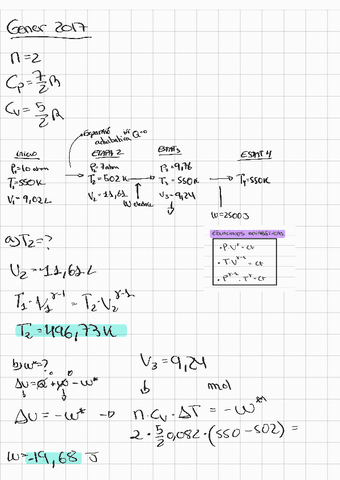 Gener 2017
n=2
Cp=7/2 R
Cv=5/2 R
Expansió adiabàtica Q=0
INICIO ETAPA 2 ESTAT 3 ESTAT 4
P1=10 atm P2=7 atm P3=9,76
T1=550K T2=502K T3=550K T4=550K
V1=9,02L V2=11,61 V3=9,24
W=2500J
EQUACIONS ADIABÀTICAS
·P·V^γ=ct
·T·V^γ-1=ct
·P^1-γ·T^γ=ct
a) T2=?
V2=11,61L
T1·V1^γ-1=T2·V2^γ-1
T2=496,73K
b) w*=? V3=9,24
ΔU=Q+W-W* mol
ΔU=-W* → n·Cv·ΔT=-W*
2·5/2 0,082·(550-502)=
W=-19,68 J